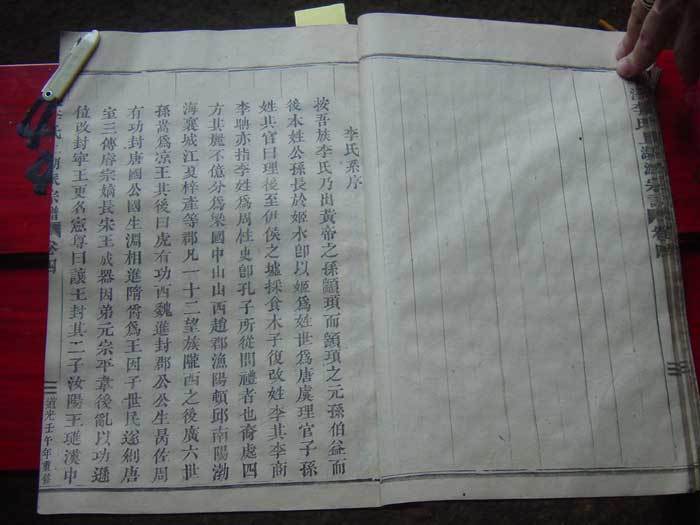 李氏系序
按吾族李氏乃出黃帝之孫顓頊而顓頊之元孫伯益而
後本姓公孫長於姬水卽以姬爲姓世爲唐虞理官子孫
姓其官曰理後至伊侯之墟採食木子復改姓李其李商
李聃亦指李姓爲周柱史卽孔子所從問禮者也裔處四
方其麗不億分爲梁國中山山西趙郡漁陽頓邱南陽渤
海襄城江夏梓產等郡凡一十二望族隴西之後廣六世
孫嵩爲凉王其後曰虎有功西魏進封郡公公生昺佐周
有功封唐國公國生淵相進隋爵爲王因子世民遂剏唐
室三傳睿宗嫡長宋王成器因弟元宗平韋後亂以功遜
位改封寧王更名憲尊曰讓王封其二子汝陽王璡漢中
李氏
宗譜
卷四
道光壬午年重修
李氏
宗譜
卷四